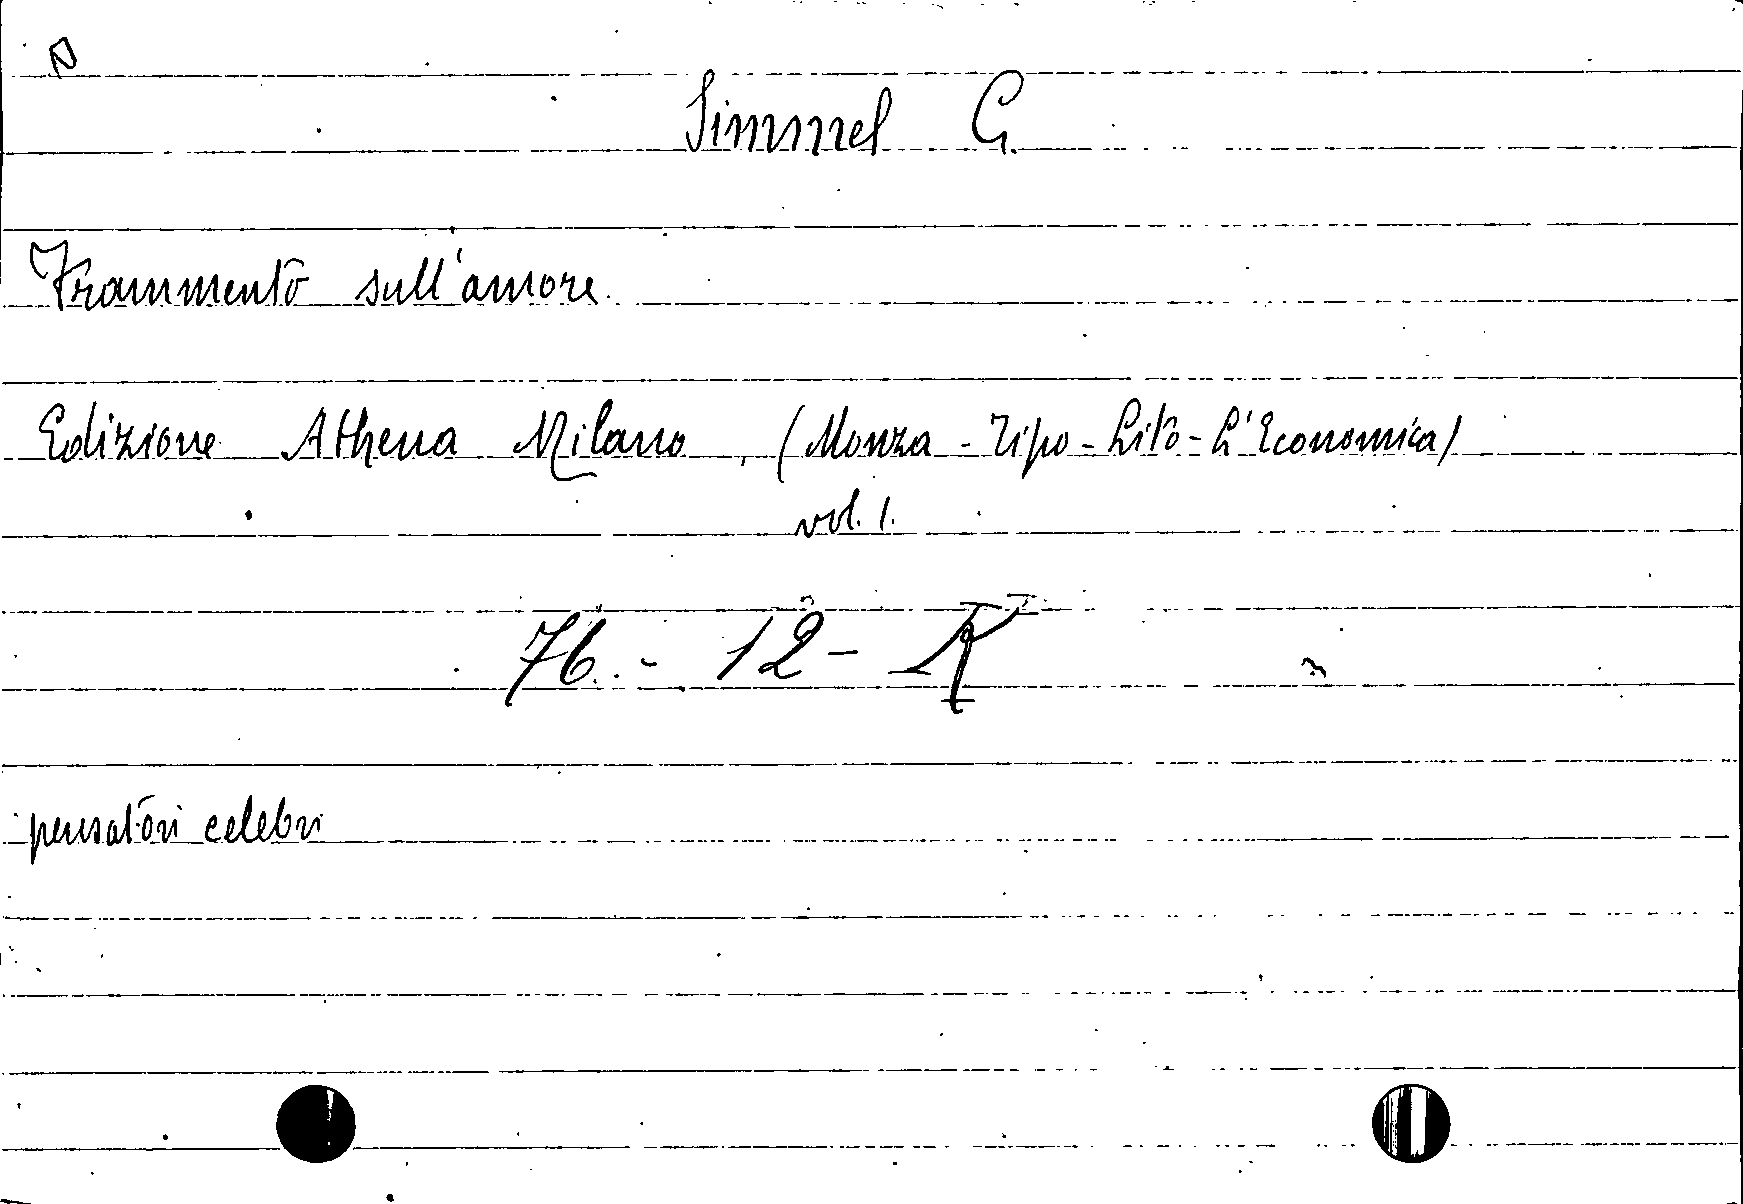 Simmel G.
Frammento sull'amore.
Edizione Athena Milano, (Monza - Tipo - Lito - L'Economica)
vol. 1.
76. - 12 -
pensatori celebri